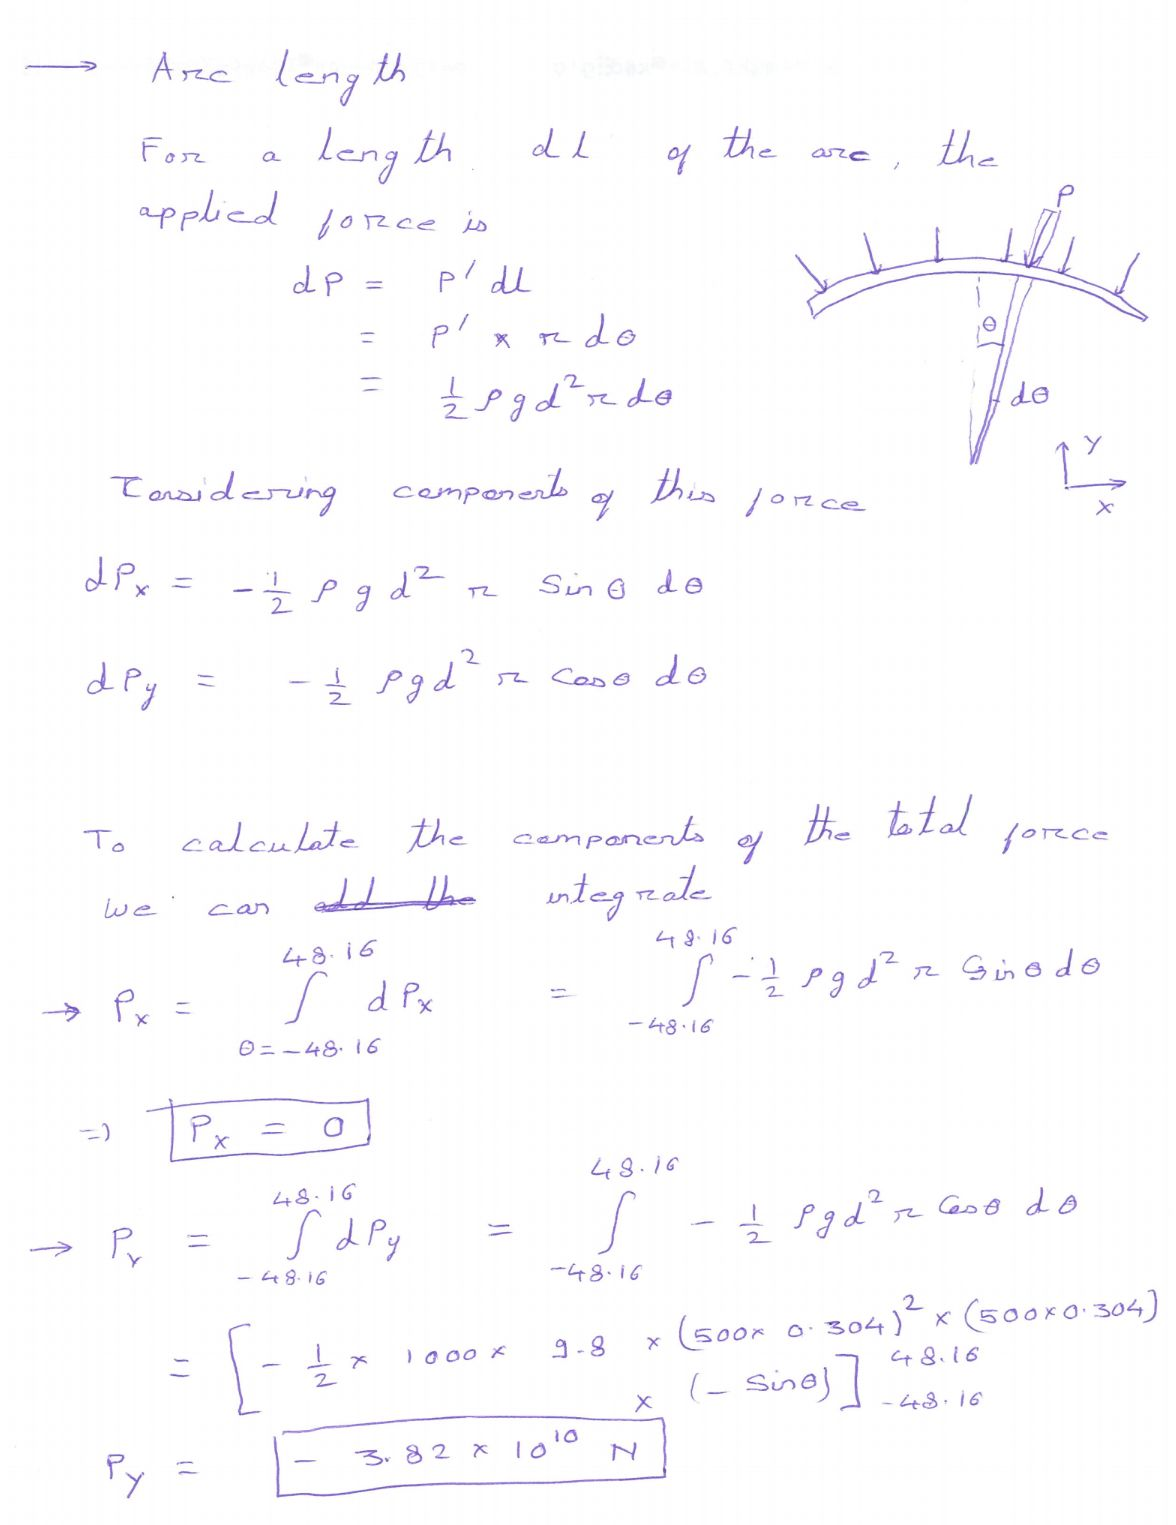 → Arc length
For a length dl of the arc, the
applied force is
P
dP = P' dl
= P' × r dθ
θ
= 1/2 ρgd² r dθ
dθ
Y
X
Considering components of this force
dPx = - 1/2 ρ g d² r Sin θ dθ
dPy = - 1/2 ρgd² r Cosθ dθ
To calculate the components of the total force
we can add the integrate
→ Px = ∫_{θ=-48.16}^{48.16} dPx = ∫_{-48.16}^{48.16} - 1/2 ρgd² r Sinθ dθ
=) Px = 0
→ Py = ∫_{-48.16}^{48.16} dPy = ∫_{-48.16}^{48.16} - 1/2 ρgd² r Cosθ dθ
= [ - 1/2 × 1000 × 9.8 × (500× 0.304)² × (500×0.304)
× (- sinθ) ]_{-48.16}^{48.16}
Py = - 3.82 × 10^10 N